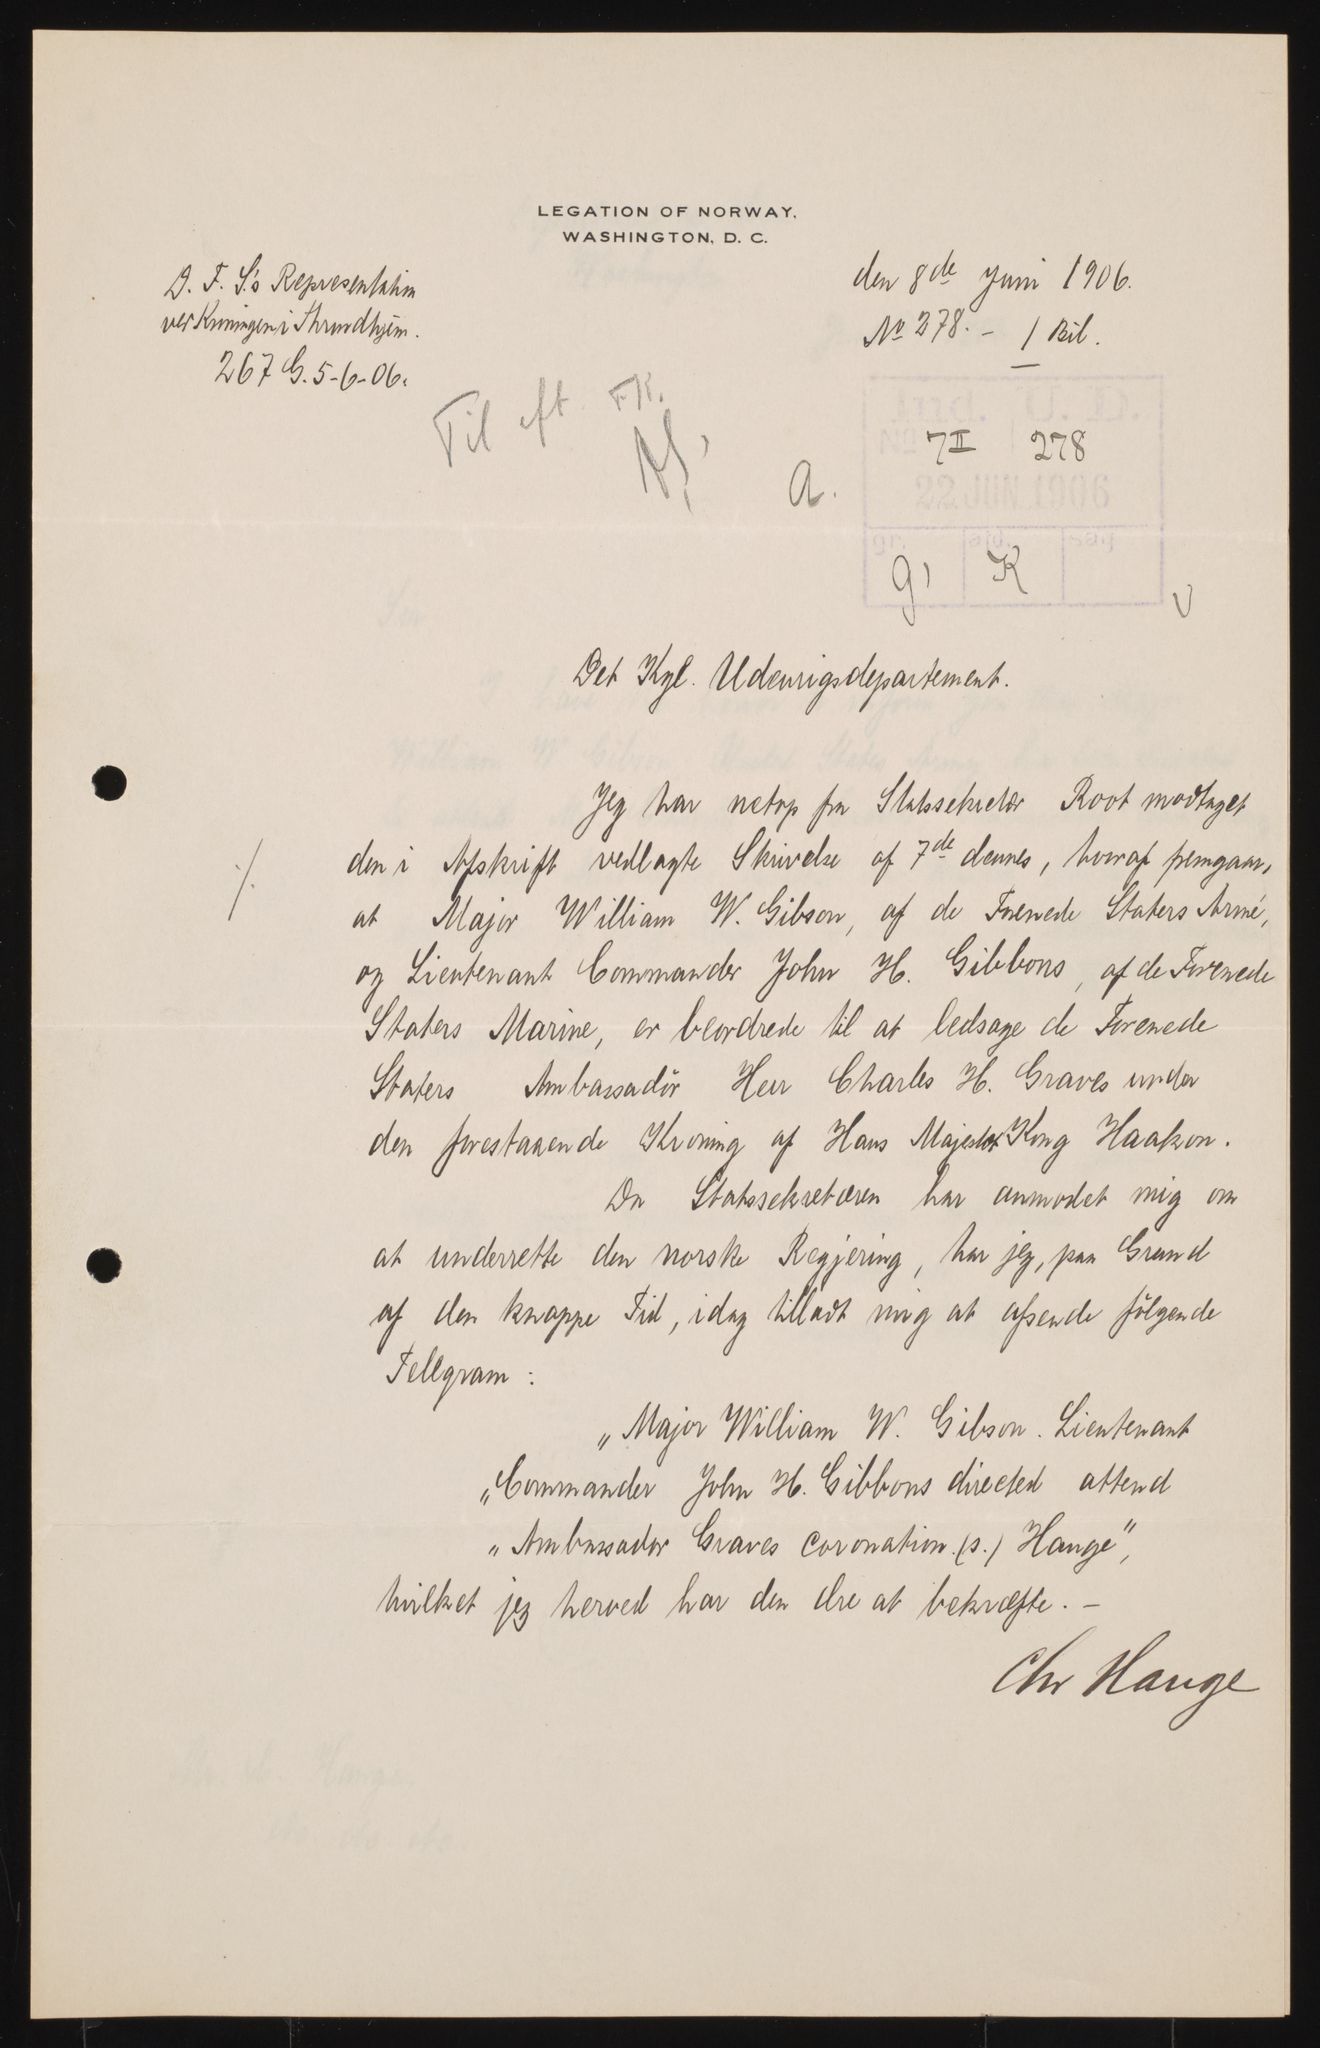 LEGATION OF NORWAY,
WASHINGTON, D. C.
D. F. S's Representation
ved Kroningen i Throndhjem.
267 G. 5-6-06.
den 8de Juni 1906.
No 278. - 1 Bil.
Til eft. FK.
a.
7II 278
22 JUN 1906
K
Det Kgl. Udenrigsdepartement.
Jeg har netop fra Statssekretær Root modtaget
./. den i Afskrift vedlagte Skrivelse af 7de dennes, hvoraf fremgaar,
at Major William W. Gibson, af de Forenede Staters Armé,
og Lieutenant Commander John H. Gibbons, af de Forenede
Staters Marine, er beordrede til at ledsage de Forenede
Staters Ambassadör Herr Charles H. Graves under
den forestaaende Kroning af Hans Majestæt Kong Haakon.
Da Statssekretæren har anmodet mig om
at underrette den norske Regjering, har jeg, paa Grund
af den knappe Tid, idag tilladt mig at afsende fölgende
Tellgram:
„Major William W. Gibson. Lieutenant
„Commander John H. Gibbons directed attend
„Ambassador Graves coronation. (s.) Hauge",
hvilket jeg herved har den ære at bekræfte. -
Chr Hauge